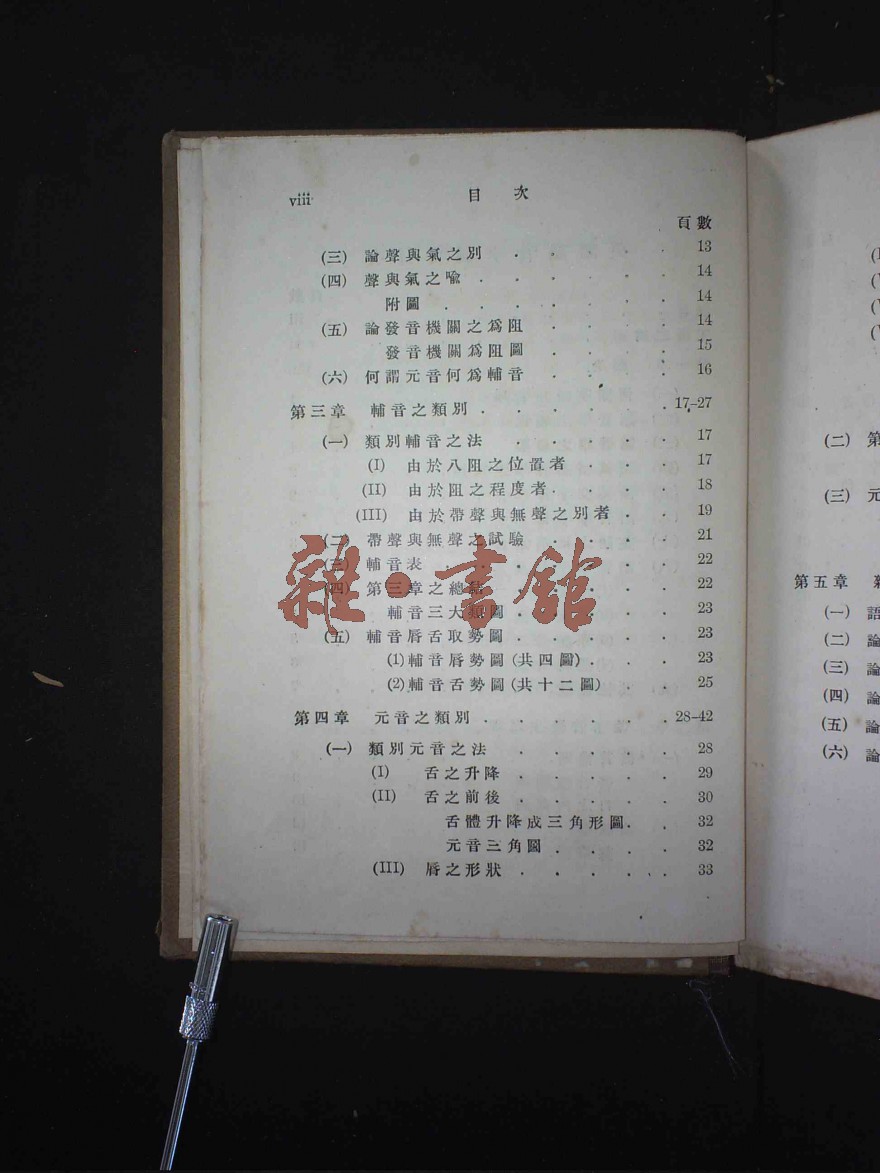 viii 目次
頁數
(三) 論聲與氣之別 . . . . . 13
(四) 聲與氣之喩 . . . . . . 14
附圖 . . . . . . . 14
(五) 論發音機關之爲阻 . . . . 14
發音機關爲阻圖 . . . . 15
(六) 何謂元音何爲輔音 . . . . 16
第三章 輔音之類別 . . . . . . 17–27
(一) 類別輔音之法 . . . . . 17
(I) 由於八阻之位置者 . . . 17
(II) 由於阻之程度者 . . . . 18
(III) 由於帶聲與無聲之別者 . . 19
(二) 帶聲與無聲之試驗 . . . . 21
(三) 輔音表 . . . . . . . 22
(四) 第三章之總結 . . . . . 22
輔音三大類圖 . . . . . 23
(五) 輔音唇舌取勢圖 . . . . . 23
(1) 輔音唇勢圖(共四圖) . . . 23
(2) 輔音舌勢圖(共十二圖) . . 25
第四章 元音之類別 . . . . . . 28–42
(一) 類別元音之法 . . . . . 28
(I) 舌之升降 . . . . . 29
(II) 舌之前後 . . . . . 30
舌體升降成三角形圖 . . 32
元音三角圖 . . . . 32
(III) 唇之形狀 . . . . . 33
雜·書館
(二) 第
(三) 元
第五章
(一) 語
(二) 論
(三) 論
(四) 論
(五) 論
(六) 論